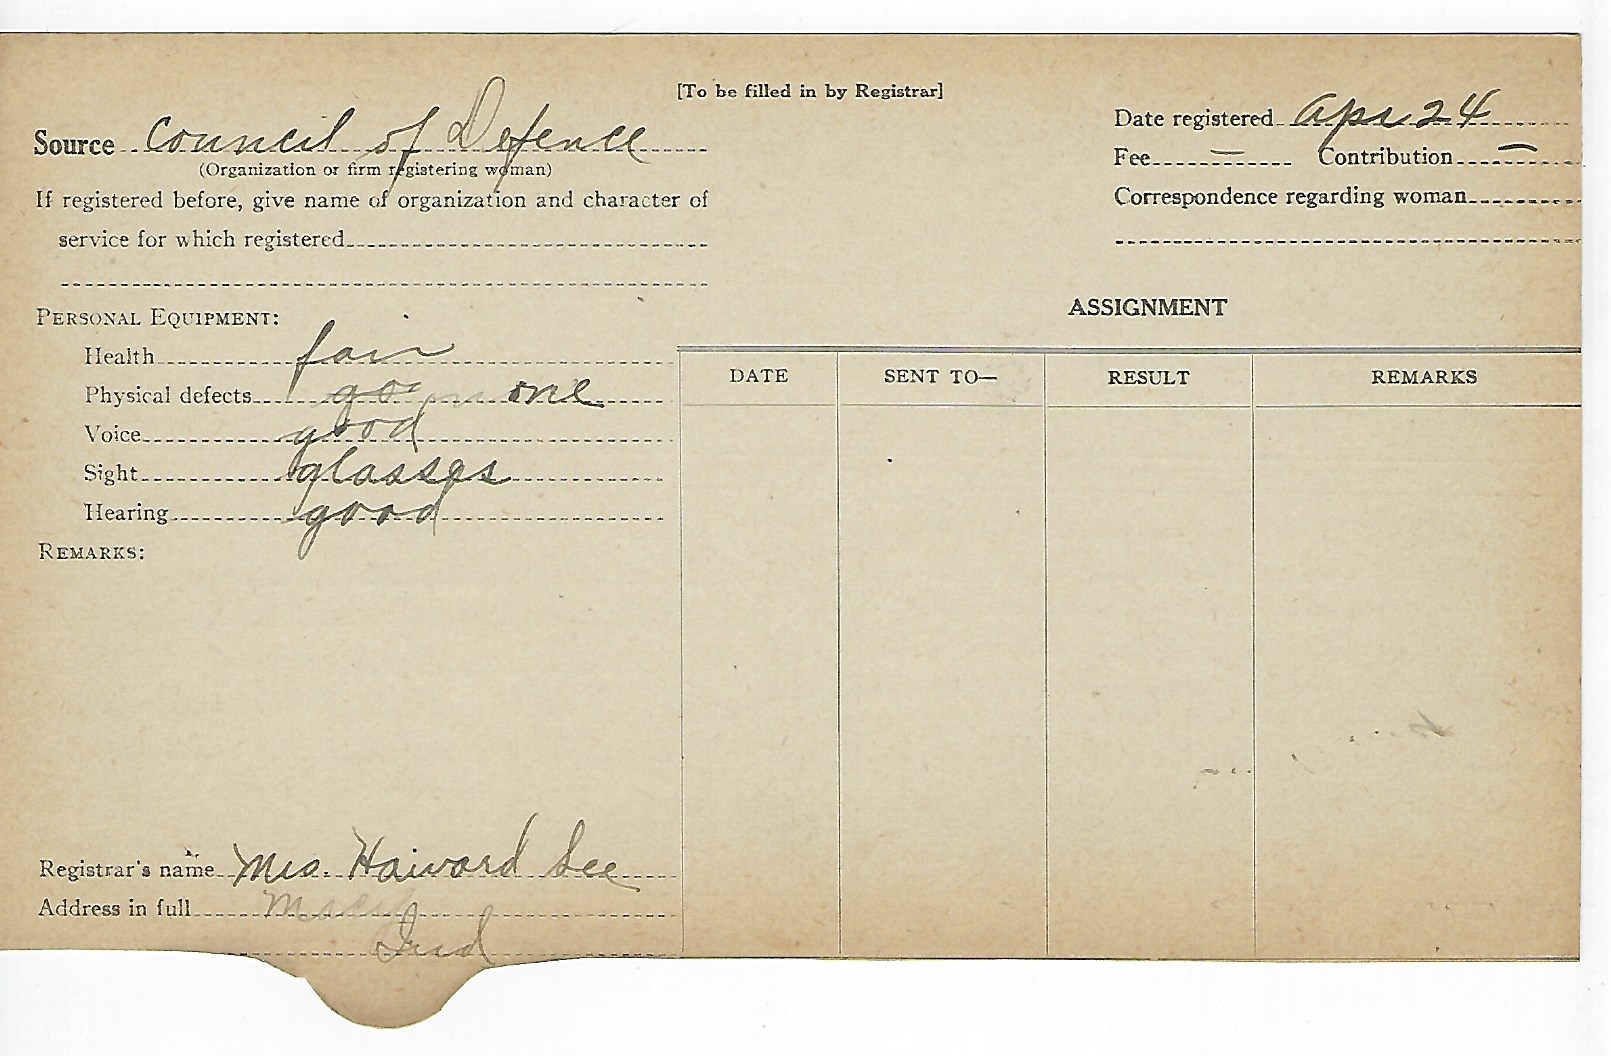 [To be filled in by Registrar]
Source Council of Defence
(Organization or firm registering woman)
If registered before, give name of organization and character of
service for which registered
Date registered Apr 24
Fee — Contribution —
Correspondence regarding woman
PERSONAL EQUIPMENT:
Health fair
Physical defects none
Voice good
Sight glasses
Hearing good
REMARKS:
Registrar's name Mrs. Haward Lee
Address in full Macy
Ind
ASSIGNMENT
DATE SENT TO— RESULT REMARKS